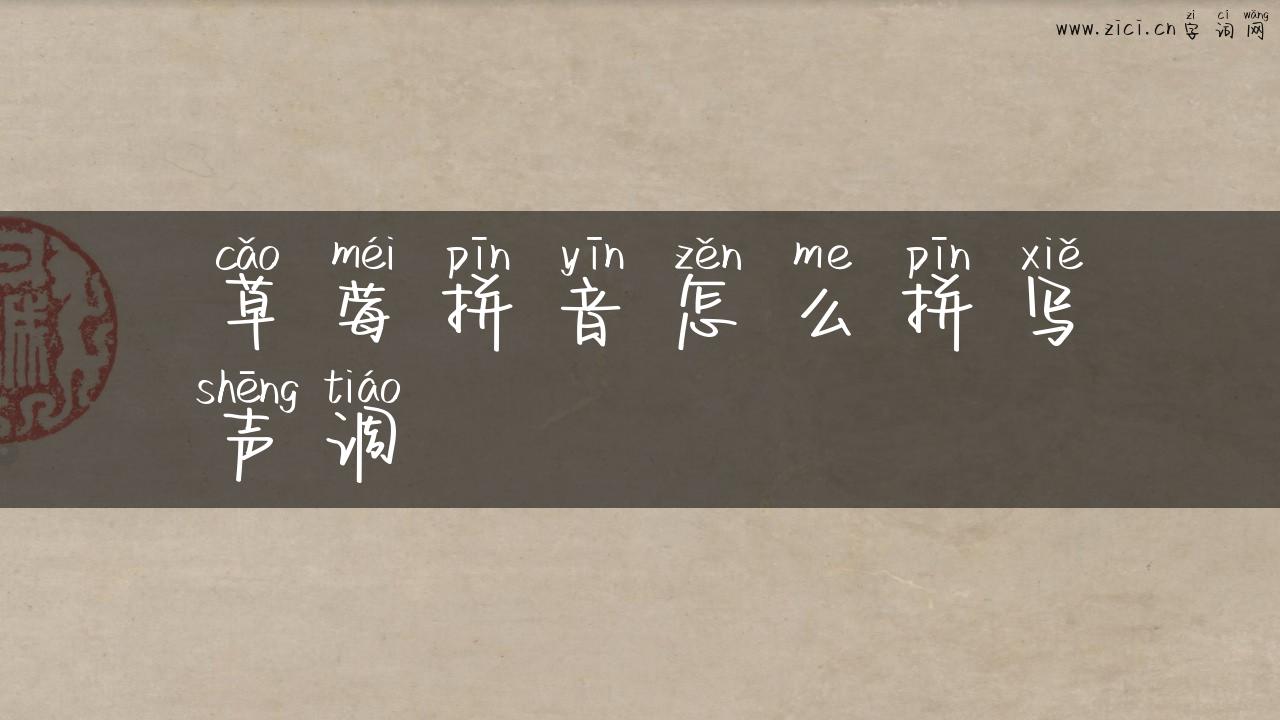 zì cí wǎng
www.zici.cn 字词网
cǎo méi pīn yīn zěn me pīn xiě
草莓拼音怎么拼写
shēng tiáo
声调